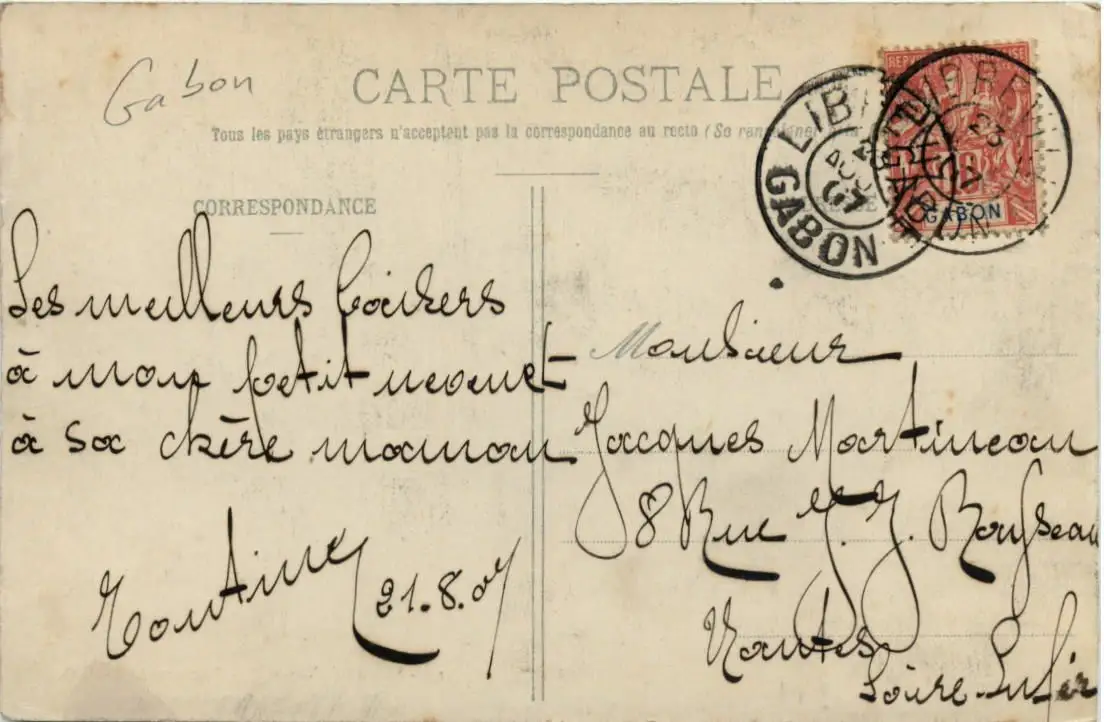 Gabon
CARTE POSTALE
Tous les pays étrangers n'acceptent pas la correspondance au recto (Se renseigner
CORRESPONDANCE
LIBREVILLE
23
AOU
07
GABON
LIBREVILLE
23
GABON
GABON
Les meilleurs baisers
à mon petit neveu et
à sa chère maman
21.8.07
Monsieur
Jacques Martineau
8 Rue J. J. Rousseau
Nantes
Loire-Infre